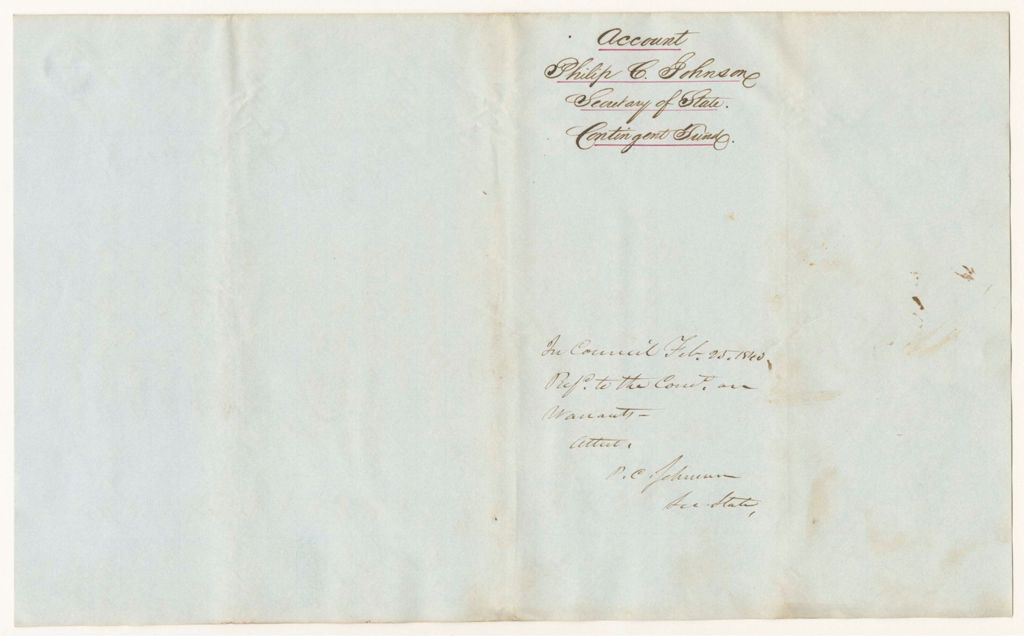 Account
Philip C. Johnson
Secretary of State.
Contingent Fund.
In Council Feb. 25. 1840
Refd. to the Comt. on
Warrants—
Attest.
P. C. Johnson
Sec State,